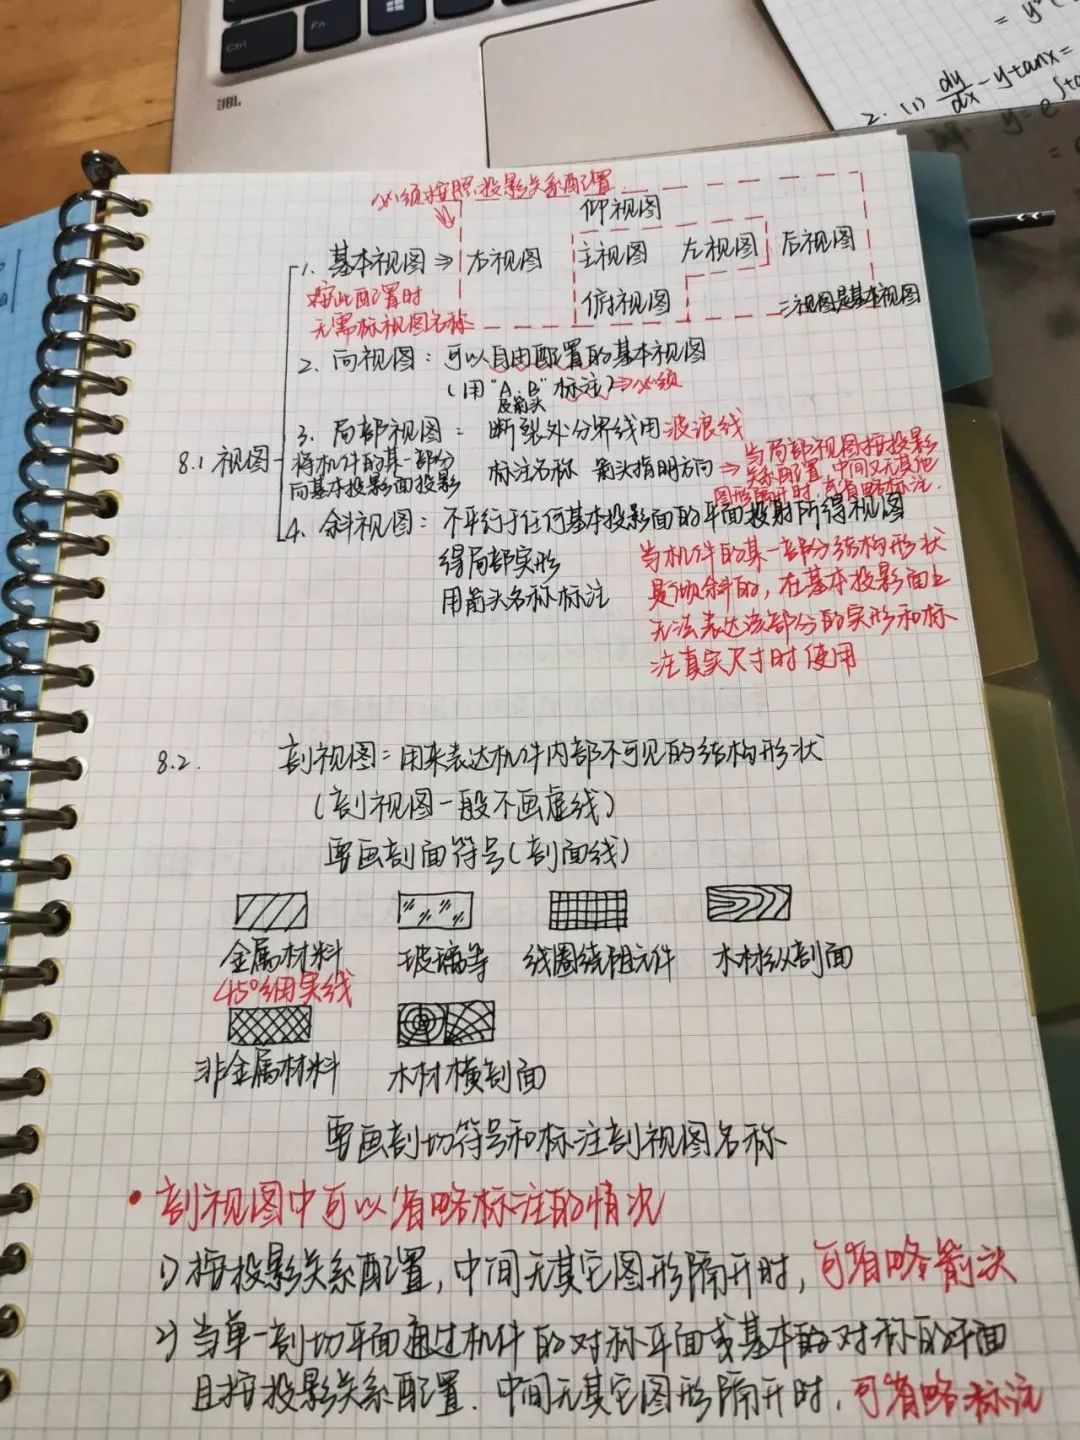 Ctrl
Fn
Alt
JBL
= y²
2. (1) dy/dx - ytanx =
y = e
必须按照投影关系配置
仰视图
1. 基本视图 ⇒ 右视图 主视图 左视图 后视图
按此配置时 俯视图 三视图是基本视图
无需标视图名称
2. 向视图：可以自由配置的基本视图
(用"A、B"标注)⇒必须
及箭头
3. 局部视图：断裂处分界线用波浪线
8.1 视图
将机件的某一部分
向基本投影面投影
标注名称 箭头指明方向 ⇒ 当局部视图按投影
关系配置，中间又无其他
图形隔开时，可省略标注.
4. 斜视图：不平行于任何基本投影面的平面投射所得视图
得局部实形
用箭头名称标注
当机件的某一部分结构形状
是倾斜的，在基本投影面上
无法表达该部分的实形和标
注真实尺寸时使用
8.2. 剖视图：用来表达机件内部不可见的结构形状
(剖视图一般不画虚线)
要画剖面符号(剖面线)
金属材料 玻璃等 线圈绕组元件 木材纵剖面
45°细实线
非金属材料 木材横剖面
要画剖切符号和标注剖视图名称
• 剖视图中可以省略标注的情况
1) 按投影关系配置，中间无其它图形隔开时，可省略箭头
2) 当单一剖切平面通过机件的对称平面或基本的对称的平面
且按投影关系配置．中间无其它图形隔开时，可省略标注